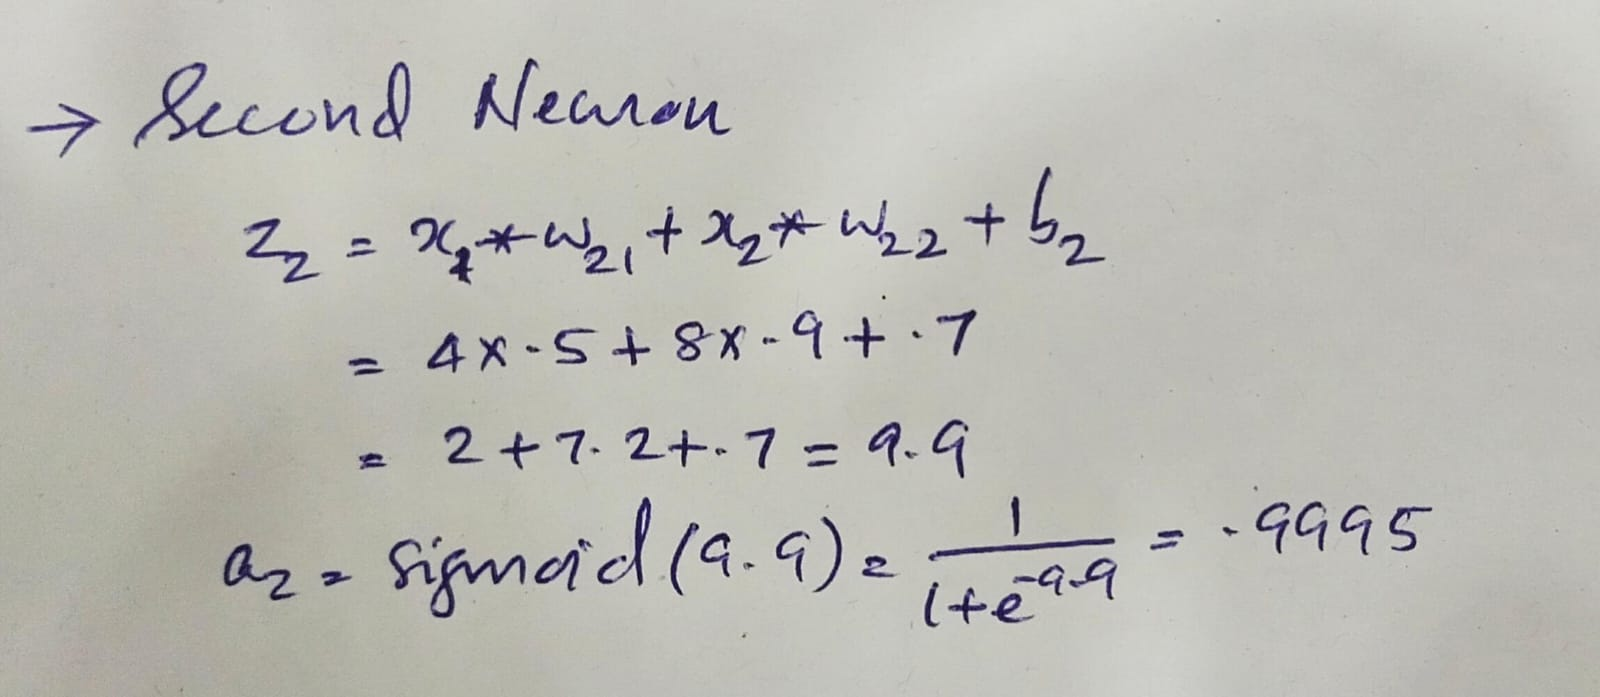 → Second Neuron
z₂ = x₁ * w₂₁ + x₂ * w₂₂ + b₂
= 4 x .5 + 8 x .9 + .7
= 2 + 7.2 + .7 = 9.9
a₂ = sigmoid (9.9) = 1/(1+e^-9.9) = .9995